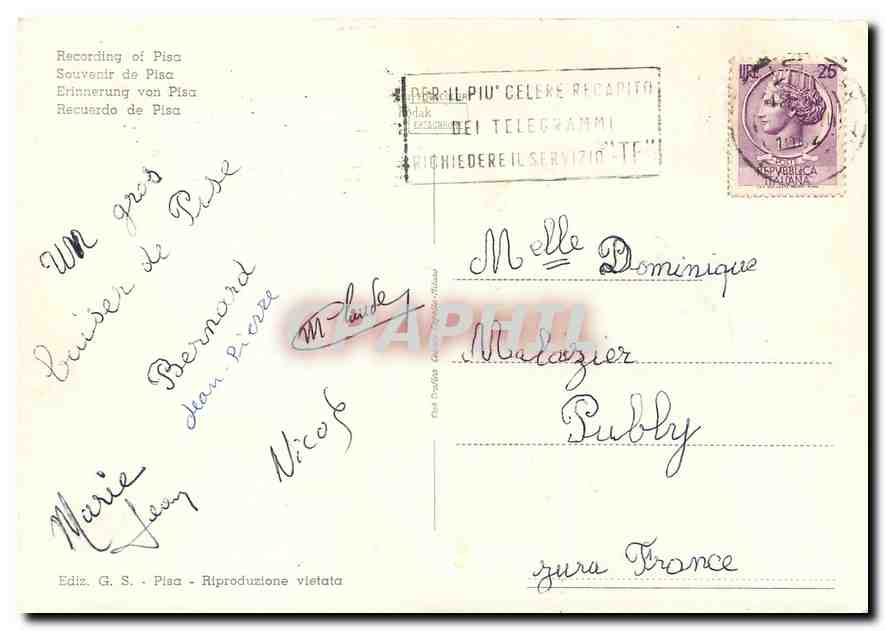 Recording of Pisa
Souvenir de Pisa
Erinnerung von Pisa
Recuerdo de Pisa
PER IL PIU' CELERE RECAPITO
DEI TELEGRAMMI
RICHIEDERE IL SERVIZIO "TF"
Kodak
EKTACHROME
LIRE 25
REPVBBLICA
ITALIANA
Un gros
baiser de Pise
Bernard
Jean-Pierre
M-Claude
Nicole
Marie
Jean
Melle Dominique
Malazier
Publy
Jura France
CPAPHIL
Ediz. G. S. - Pisa - Riproduzione vietata